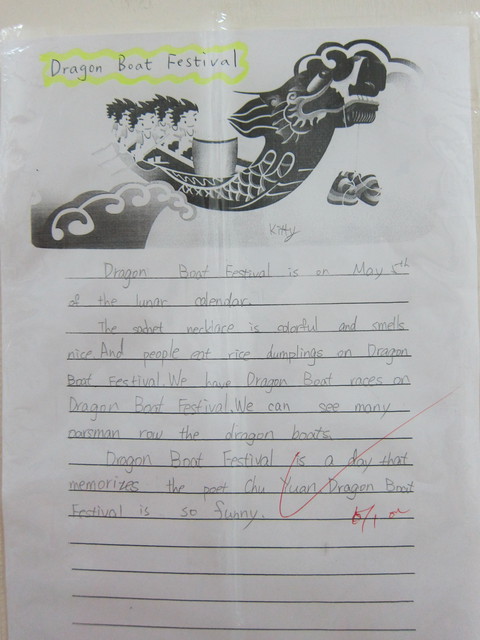 Dragon Boat Festival
Kitty
Dragon Boat Festival is on May 5th
of the lunar calendar.
The sachet necklace is colorful and smells
nice. And people eat rice dumplings on Dragon
Boat Festival. We have Dragon Boat races on
Dragon Boat Festival. We can see many
oarsman row the dragon boats.
Dragon Boat Festival is a day that
memorizes the poet Chu Yuan. Dragon Boat
Festival is so funny.